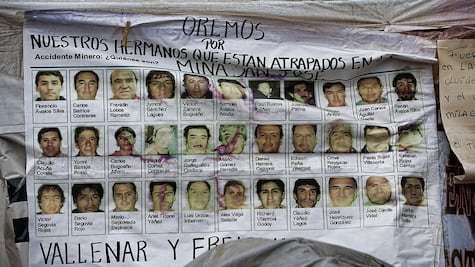 OREMOS
POR
NUESTROS HERMANOS QUE ESTAN ATRAPADOS EN
Accidente Minero: ¿Quiénes son?
MINA SAN JOSE
Florencio Avalos Silva
Carlos Barrios Contreras
Franklin Lobos Ramirez
Jimmy Sánchez Lagues
Victor Zamora Bugueño
Samuel Avalos Acuña
Raúl Bustos Ibáñez
Juan Carlos Aguilar
Renán Avalos Silva
Claudio Acuña Cortés
Yonni Barrios Rojas
Carlos Bugueño Alfaro
Jorge Galleguillos Orellana
Mario Gómez Heredia
Daniel Herrera Campos
Omar Reygadas Rojas
Pablo Rojas Villacorta
Esteban Rojas
Victor Segovia Rojas
Darío Segovia Rojo
Mario Sepúlveda Espinaza
Ariel Ticona Yáñez
Luis Urzúa Iribarren
Alex Vega Salazar
Richard Villarroel Godoy
Claudio Yáñez Lagos
José Henríquez González
José Ojeda Vidal
VALLENAR Y